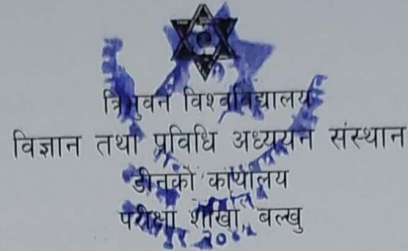 त्रिभुवन विश्वविद्यालय
विज्ञान तथा प्रविधि अध्ययन संस्थान
डीनको कार्यालय
परीक्षा शाखा, बल्खु